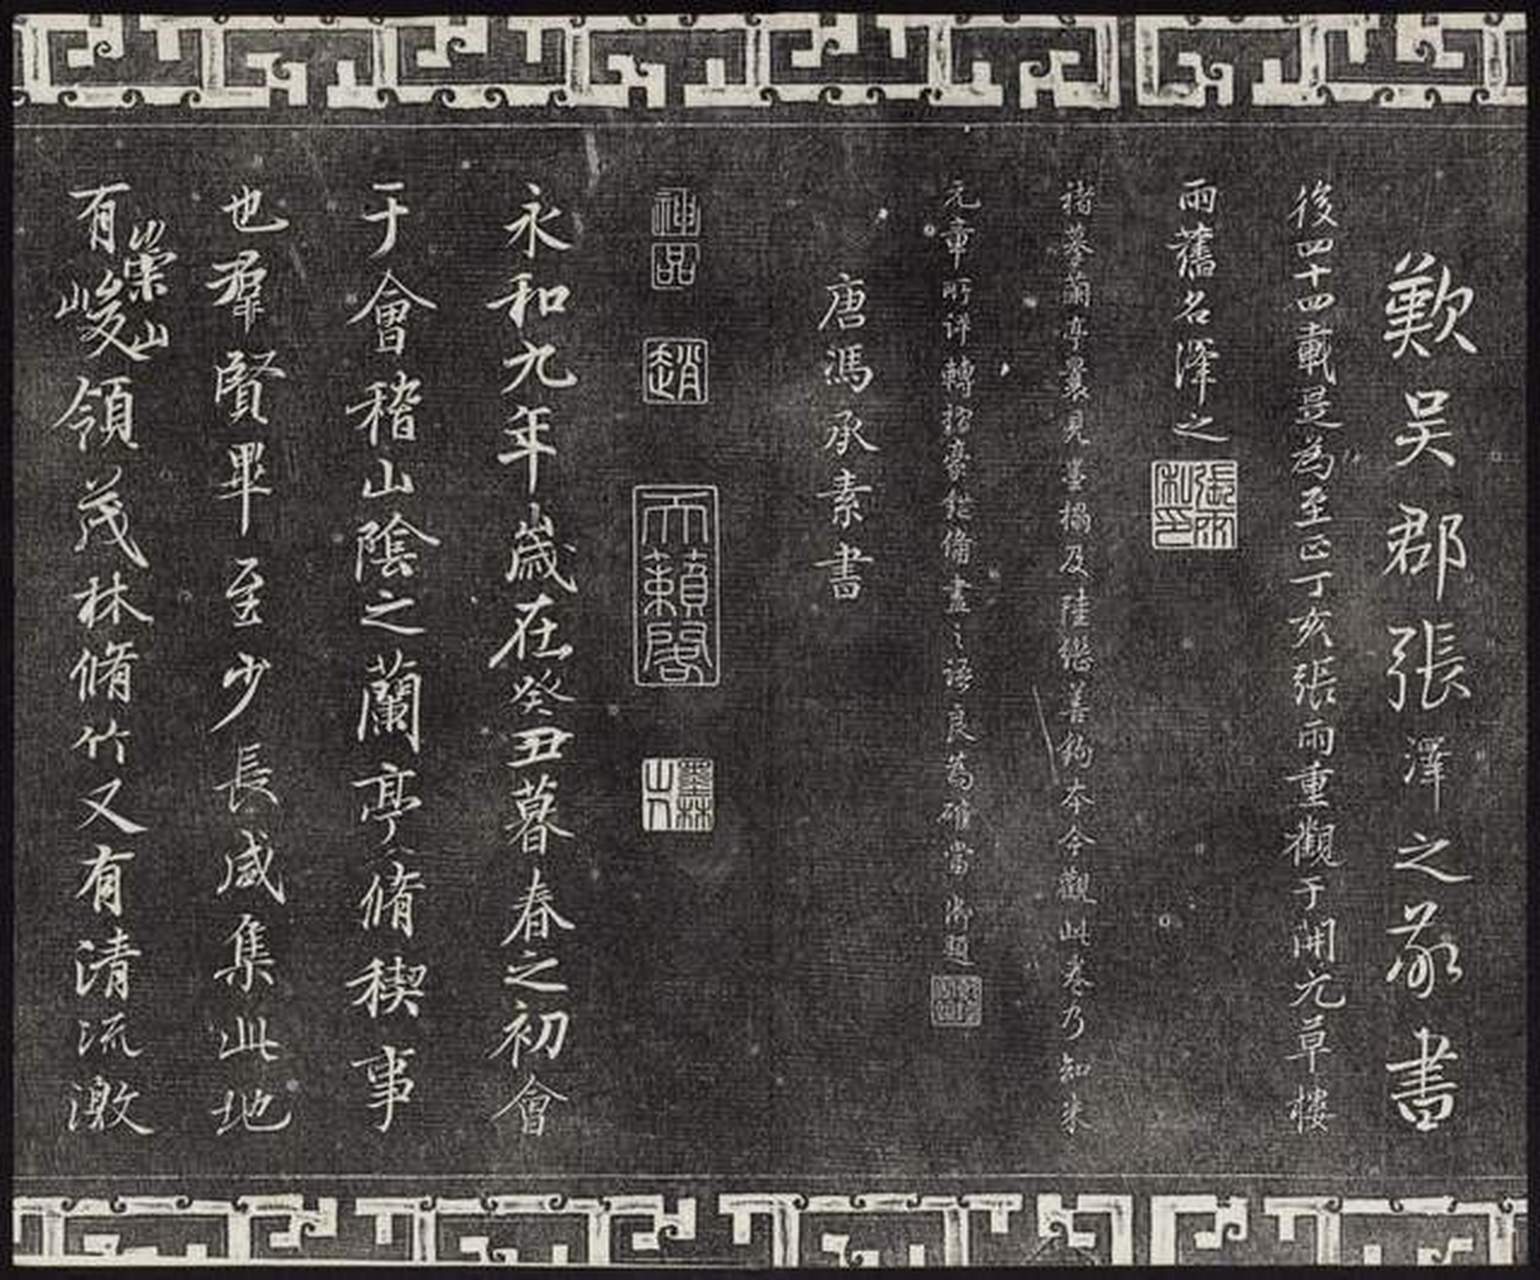 歎吳郡張澤之敬書
後四十四載是為至正丁亥張雨重觀于開元草樓
雨舊名澤之
張雨私印
褚摹蘭亭曩見墨搨及陸繼善鉤本今觀此卷乃知朱
元章所評轉摺豪鋩備盡之語良為確當御題
唐馮承素書
神品
趙
天籟閣
墨林山人
永和九年歲在癸丑暮春之初會
于會稽山陰之蘭亭脩稧事
也羣賢畢至少長咸集此地
有崇山峻領茂林脩竹又有清流激